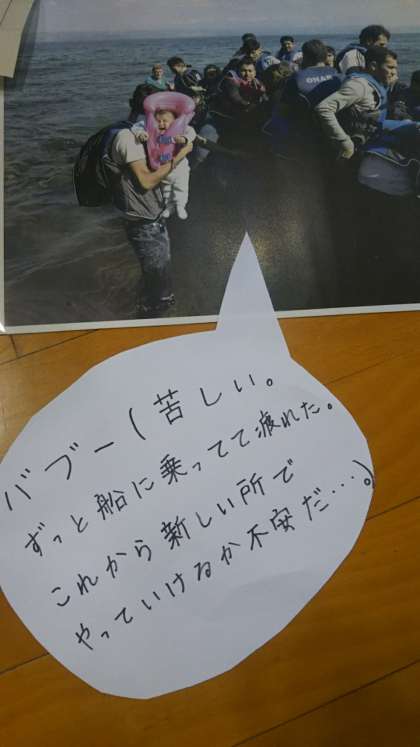 OMAR
バブー(苦しい。
ずっと船に乗ってて疲れた。
これから新しい所で
やっていけるか不安だ…。)